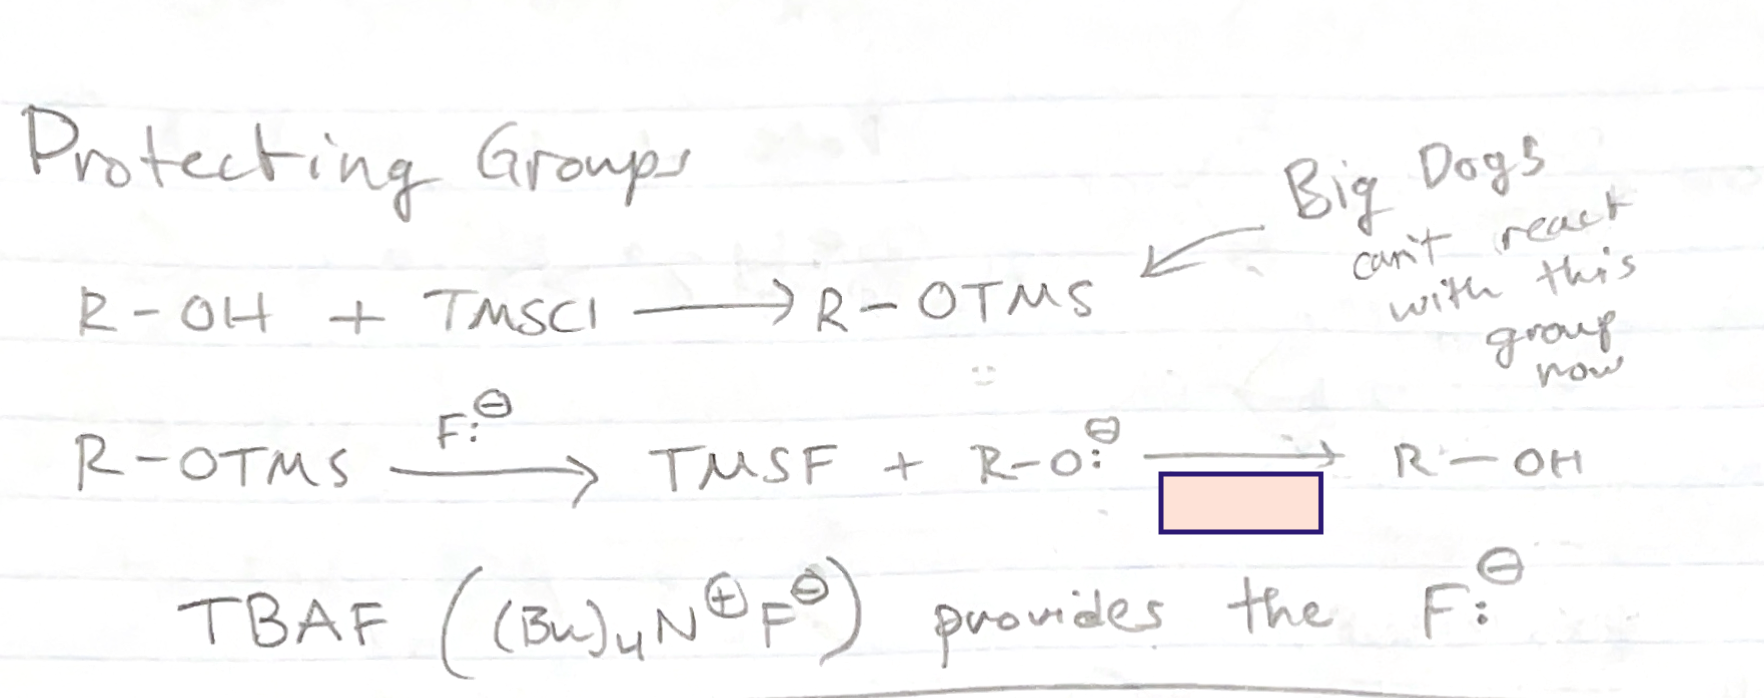 Protecting Groups
Big Dogs
can't react
with this
group
now
R-OH + TMSCl ⟶ R-OTMS
F:⊖
R-OTMS ⟶ TMSF + R-O:⊖ ⟶ R-OH
TBAF ((Bu)₄N⊕F⊖) provides the F:⊖